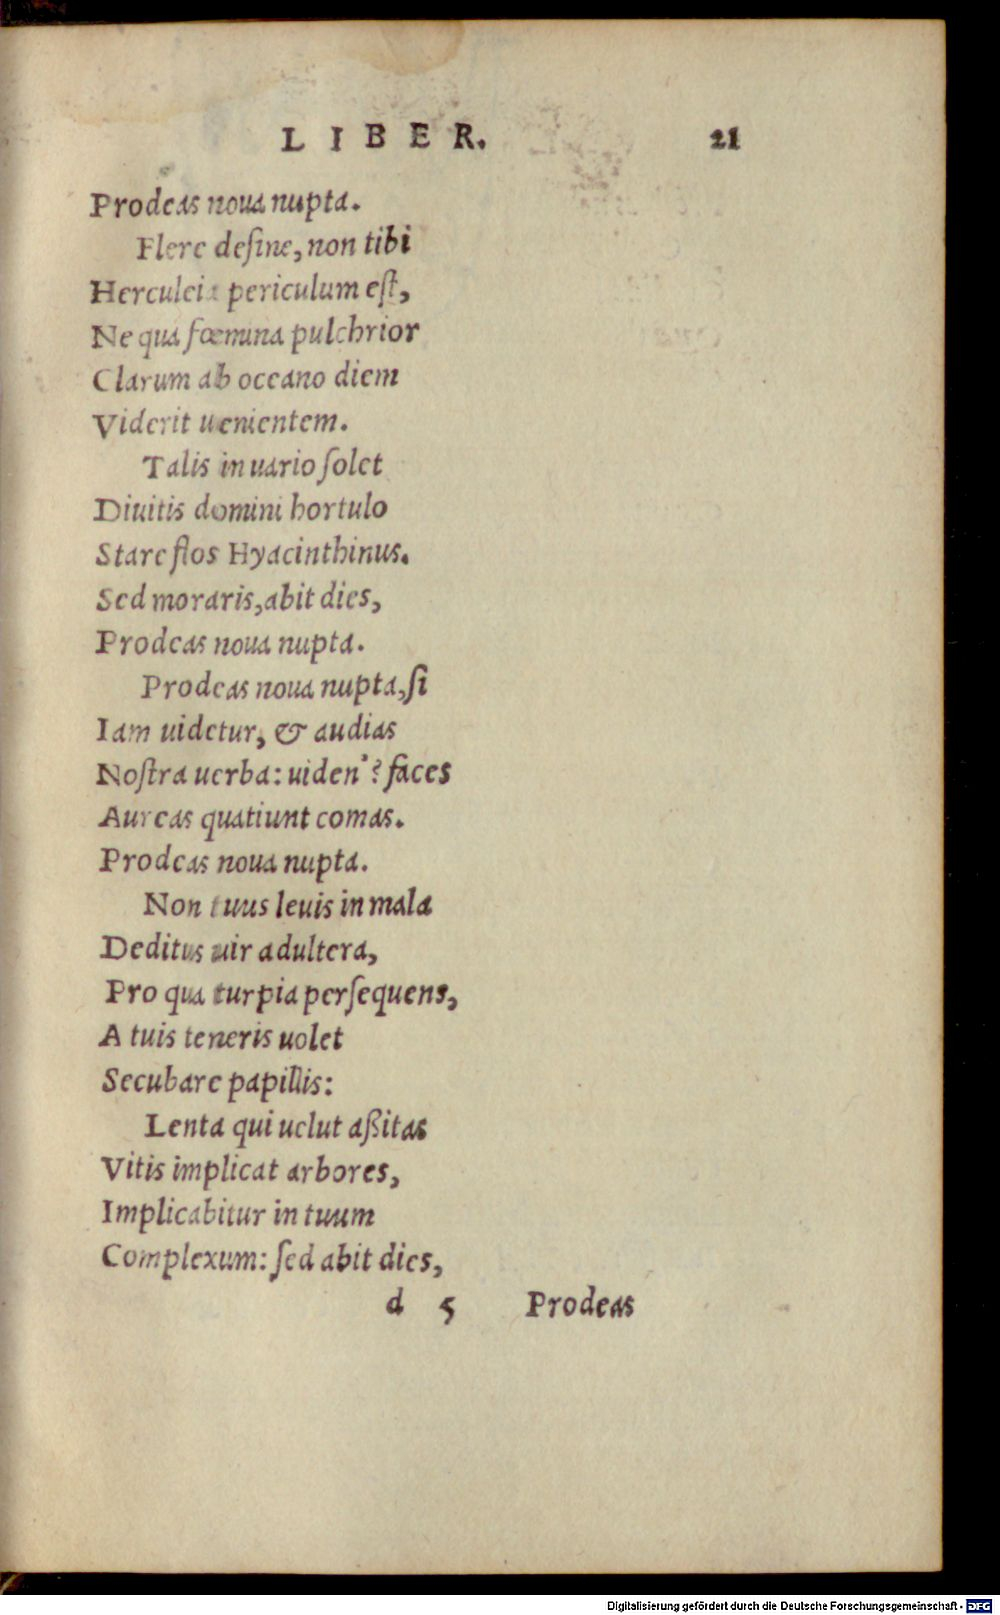 LIBER. 21
Prodeas noua nupta.
Flere desine, non tibi
Herculeia periculum est,
Ne qua fœmina pulchrior
Clarum ab oceano diem
Viderit uenientem.
Talis in uario solet
Diuitis domini hortulo
Stare flos Hyacinthinus.
Sed moraris, abit dies,
Prodeas noua nupta.
Prodeas noua nupta, si
Iam uidetur, & audias
Nostra uerba: uiden'? faces
Aureas quatiunt comas.
Prodeas noua nupta.
Non tuus leuis in mala
Deditus uir adultera,
Pro qua turpia persequens,
A tuis teneris uolet
Secubare papillis:
Lenta qui uelut aßitas
Vitis implicat arbores,
Implicabitur in tuum
Complexum: sed abit dies,
d 5 Prodeas
Digitalisierung gefördert durch die Deutsche Forschungsgemeinschaft - DFG